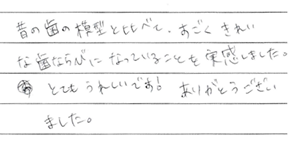 昔の歯の模型と比べて、すごくきれい
な歯ならびになっていることを実感しました。
とてもうれしいです! ありがとうござい
ました。